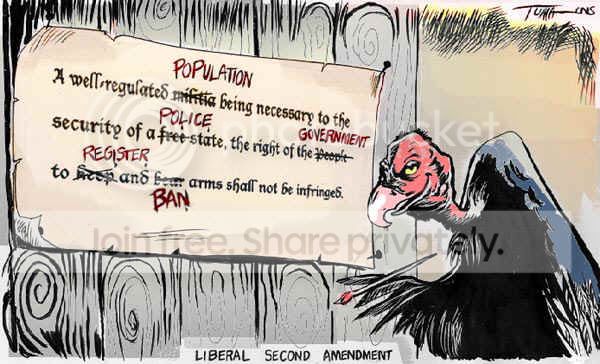 TUMA CNS
POPULATION
A well-regulated militia being necessary to the
POLICE GOVERNMENT
security of a free state, the right of the people
REGISTER
to keep and bear arms shall not be infringed.
BAN
photobucket
Join free. Share privately.
LIBERAL SECOND AMENDMENT